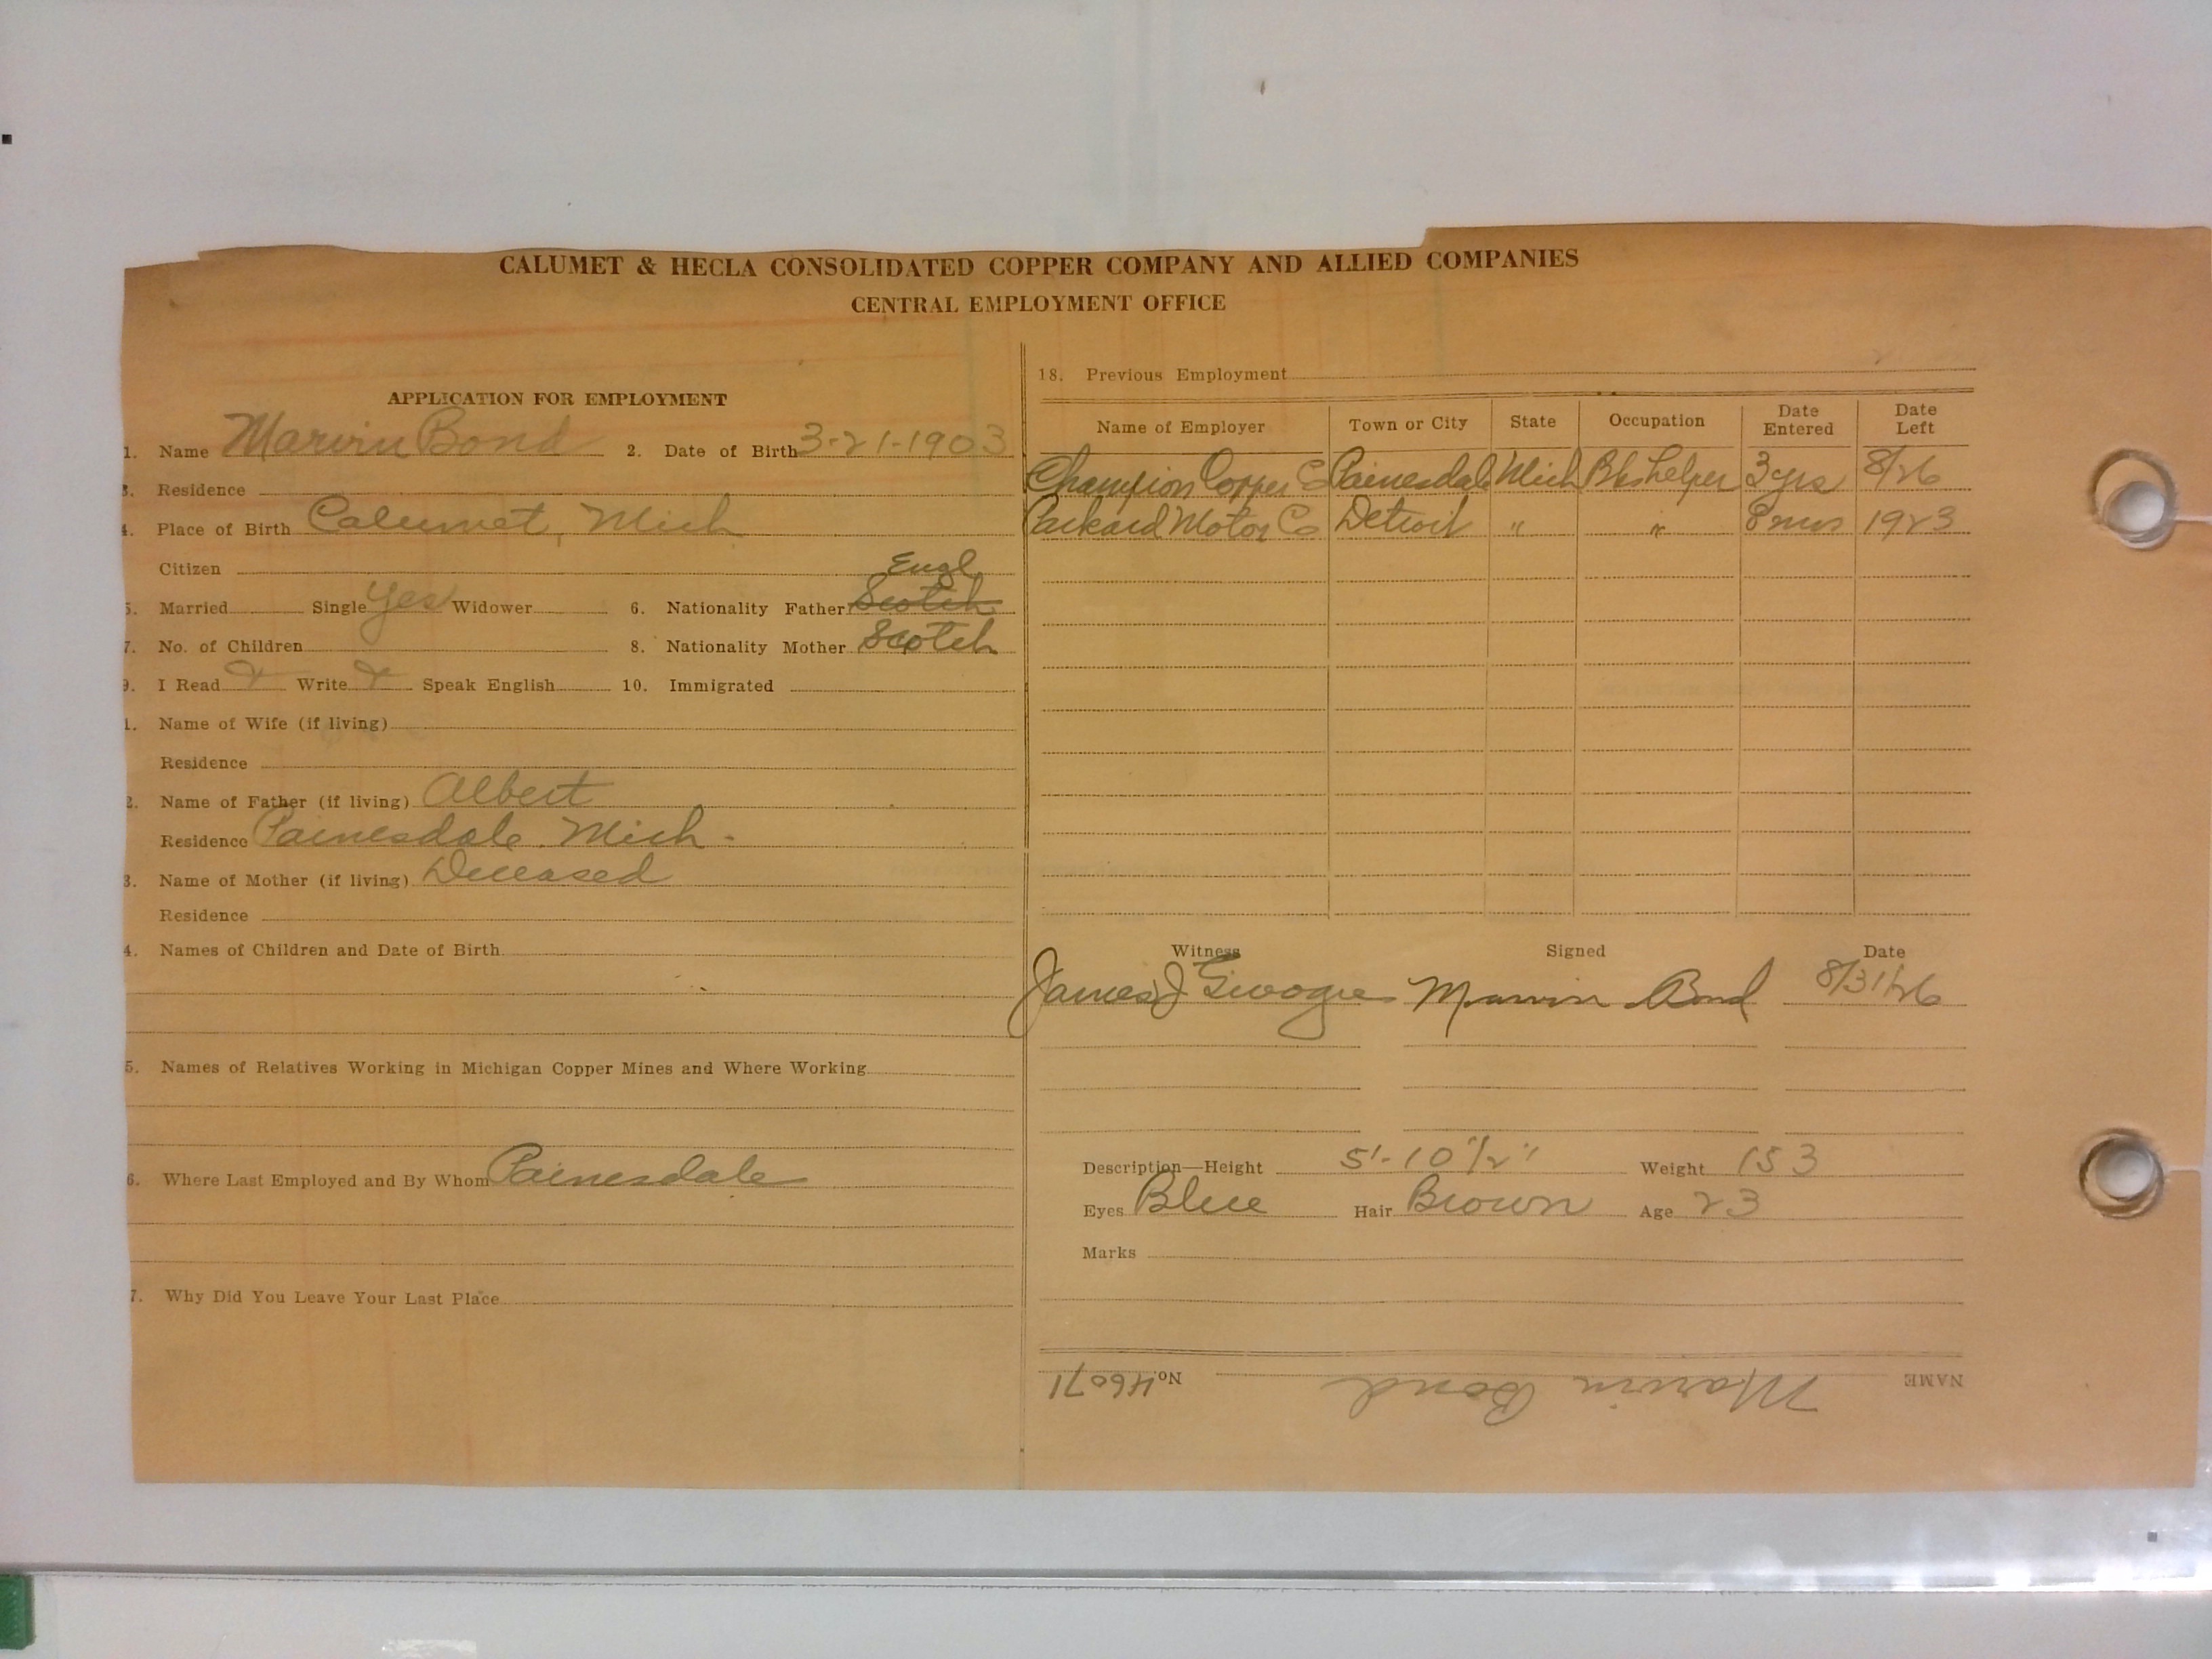 CALUMET & HECLA CONSOLIDATED COPPER COMPANY AND ALLIED COMPANIES
CENTRAL EMPLOYMENT OFFICE
APPLICATION FOR EMPLOYMENT
1. Name Marvin Bond 2. Date of Birth 3-21-1903
3. Residence
4. Place of Birth Calumet, Mich
Citizen
Engl
5. Married Single Yes Widower 6. Nationality Father Scotch
7. No. of Children 8. Nationality Mother Scotch
9. I Read Write Speak English 10. Immigrated
1. Name of Wife (if living)
Residence
2. Name of Father (if living) Albert
Residence Painesdale. Mich.
3. Name of Mother (if living) Deceased
Residence
4. Names of Children and Date of Birth
5. Names of Relatives Working in Michigan Copper Mines and Where Working
6. Where Last Employed and By Whom Painesdale
7. Why Did You Leave Your Last Place
18. Previous Employment
Name of Employer Town or City State Occupation Date Entered Date Left
Champion Copper Co Painesdale Mich Bks helper 3 yrs 8/26
Packard Motor Co Detroit " " 8 mos 1923
Witness Signed Date
James J Marvin Bond 8/31/26
Description—Height 5'-10 1/2" Weight 153
Eyes Blue Hair Brown Age 23
Marks
NAME Marvin Bond No. 46071